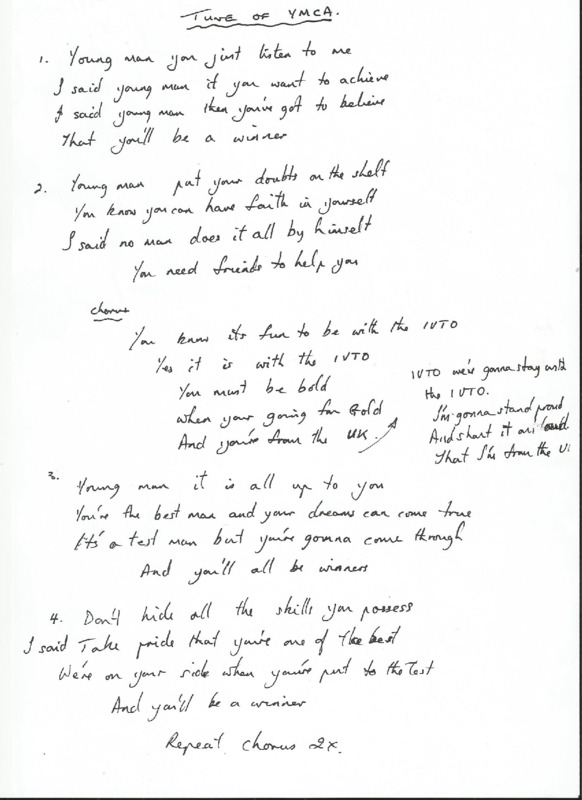 TUNE OF YMCA.
1. Young man you just listen to me
I said young man if you want to achieve
I said young man then you've got to believe
That you'll be a winner
2. Young man put your doubts on the shelf
You know you can have faith in yourself
I said no man does it all by himself
You need friends to help you
chorus
You know its fun to be with the IVTO
Yes it is with the IVTO
You must be bold
when your going for Gold
And you're from the UK.
IVTO we're gonna stay with
the IVTO.
I'm gonna stand proud
And shout it out loud
That I'm from the U
3. Young man it is all up to you
You're the best man and your dreams can come true
It's a test man but you're gonna come through
And you'll all be winners
4. Don't hide all the skills you possess
I said Take pride that you're one of the best
We're on your side when you're put to the Test
And you'll be a winner
Repeat chorus 2x.